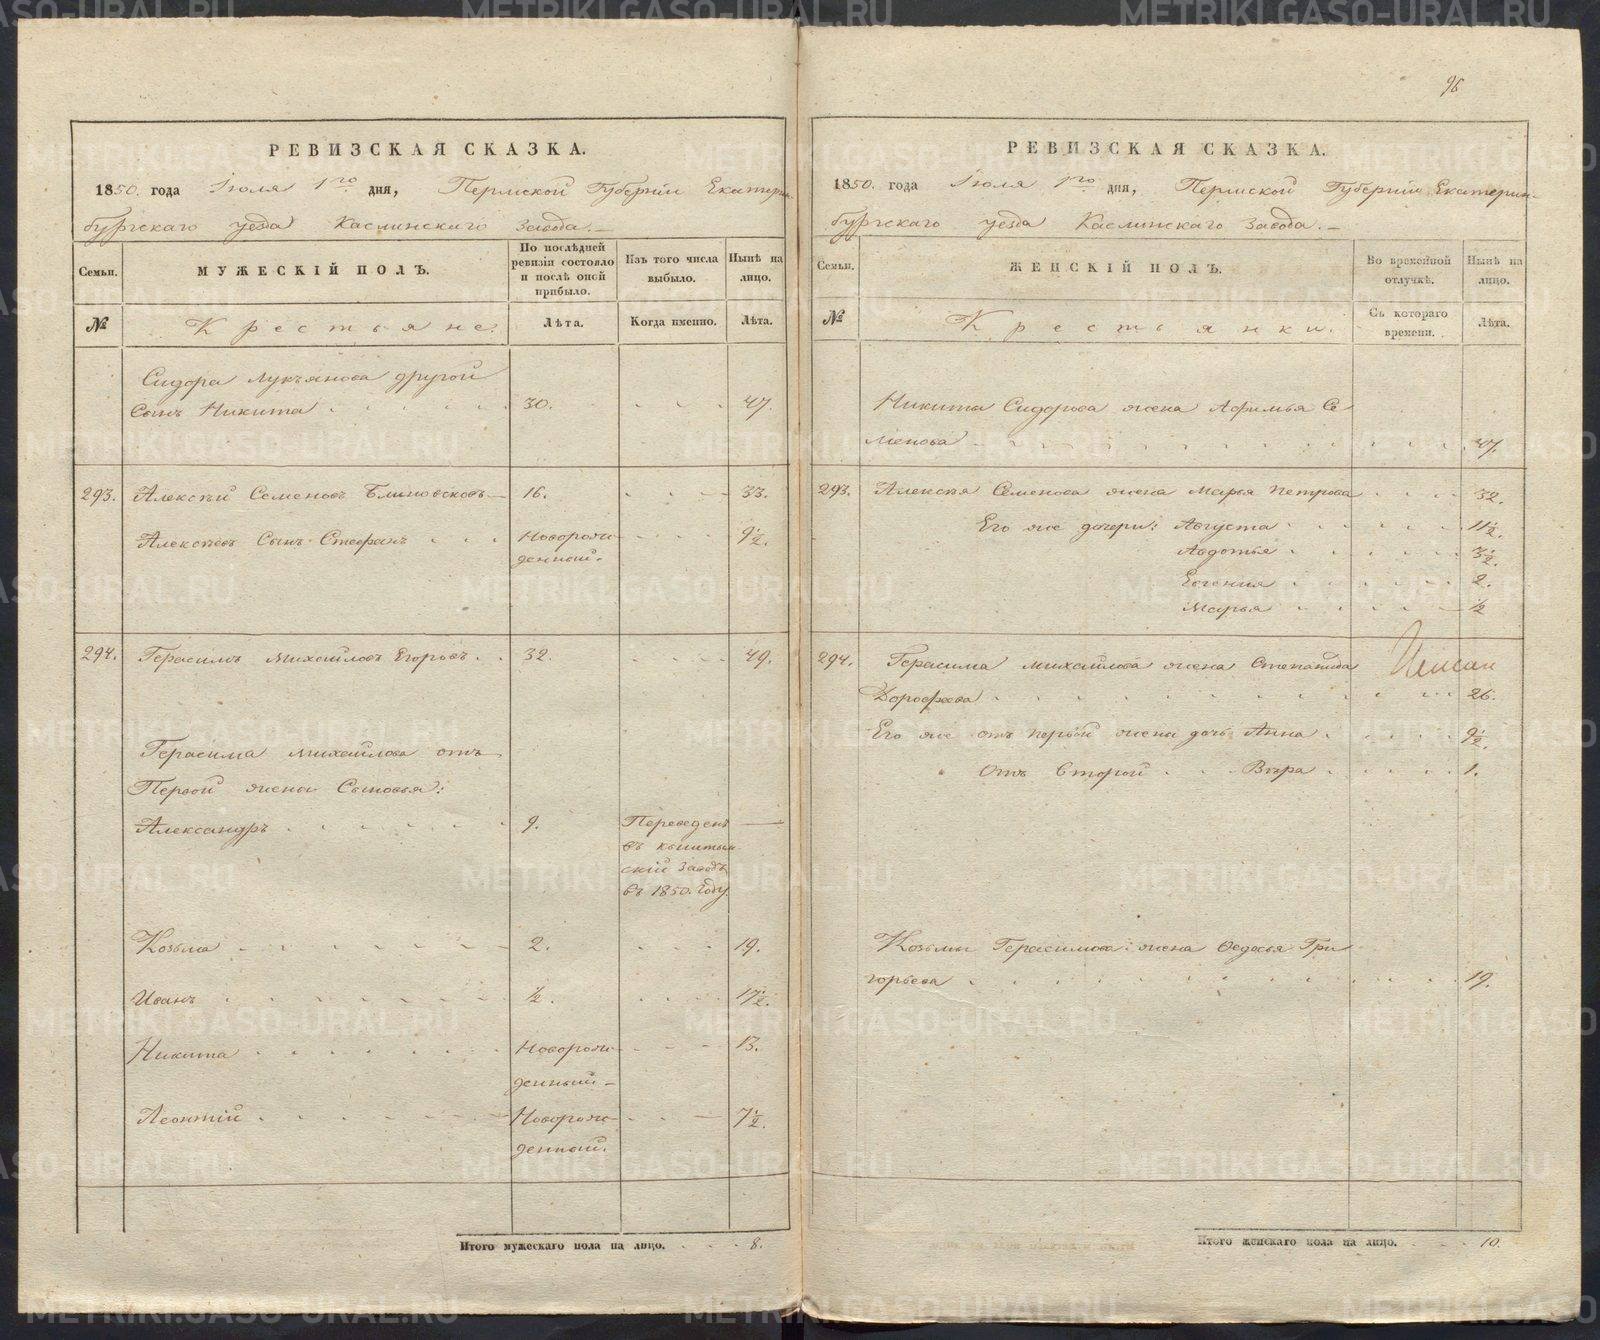 96
РЕВИЗСКАЯ СКАЗКА.
1850. года Іюля 1го дня, Пермской Губерніи Екатерин-
бургскаго уезда Каслинскаго завода.
Семьи.
МУЖЕСКІЙ ПОЛЪ.
По послѣдней ревизіи состояло и послѣ оной прибыло.
Изъ того числа выбыло.
Нынѣ на лицо.
№
Крестьяне.
Лѣта.
Когда именно.
Лѣта.
Сидора Лукъянова другой
Сынъ Никита 30. 47.
293. Алексѣй Семеновъ Блиновсковъ 16. 33.
Алексѣевъ Сынъ Стефанъ Новорож- 9½.
денный.
294. Герасимъ Михайловъ Егоровъ 32. 49.
Герасима Михайлова отъ
Первой жены Сыновья:
Александръ 9. Переведенъ —
въ Кыштым
скій Заводъ
въ 1850. Году.
Козьма 2. 19.
Иванъ ½. 17½.
Никита Новорож- 13.
денный
Леонтій Новорож- 7½.
денный.
Итого мужескаго пола на лицо. 8.
РЕВИЗСКАЯ СКАЗКА.
1850. года Іюля 1го дня, Пермской Губерніи Екатерин-
бургскаго уезда Каслинскаго Завода.
Семьи.
ЖЕНСКІЙ ПОЛЪ.
Во временной отлучкѣ.
Нынѣ на лицо.
№
Крестьянки.
Съ котораго времени.
Лѣта.
Никиты Сидорова жена Афимья Се
менова 47.
293. Алексѣя Семенова жена Марья Петрова 32.
Его же дочери: Августа 11½.
Авдотья 3½.
Евгения 2.
Марья ½
294. Герасима Михайлова жена Степанида
Дорофѣева 26.
Его же отъ первой жены дочь Анна 9½.
Отъ второй Вѣра 1.
Козьмы Герасимова жена Федосья Гри
горьева 19.
Итого женскаго пола на лицо. 10.
METRIKI.GASO-URAL.RU